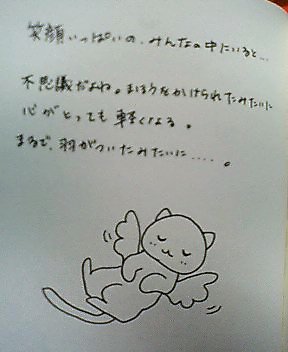 笑顔いっぱいの、みんなの中にいると…
不思議だよね。まほうをかけられたみたいに
心がとっても軽くなる。
まるで、羽がついたみたいに……。